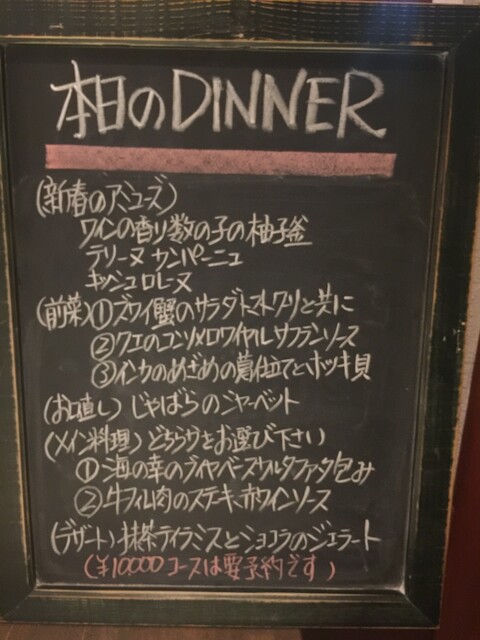 本日のDINNER
(新春のアミューズ)
ワインの香り数の子の柚子釜
テリーヌカンパーニュ
キッシュロレーヌ
(前菜)①ズワイ蟹のサラダトマトクリと共に
②クエのコンソメロワイヤルサフランソース
③インカのめざめの葛仕立てとホッキ貝
(お口直し)じゃばらのシャーベット
(メイン料理)どちらかをお選び下さい
①海の幸のブイヤベース包み
②牛フィレ肉のステーキ、赤ワインソース
(デザート)抹茶ティラミスとショコラのジェラート
(¥10,000コースは要予約です)